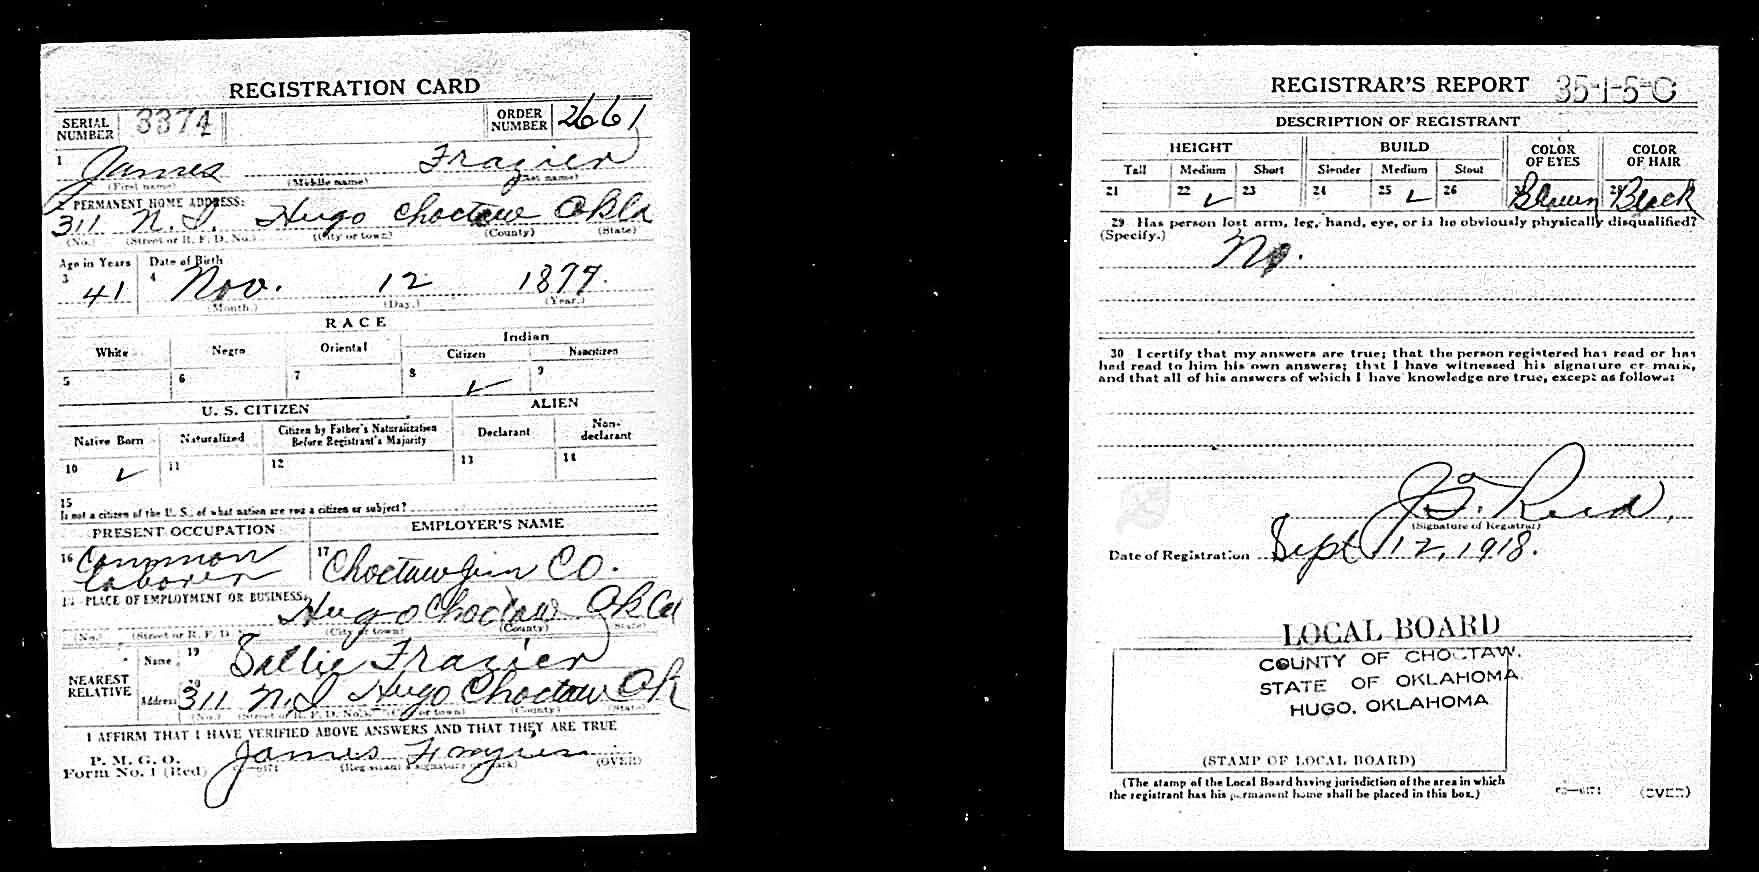 REGISTRATION CARD
SERIAL NUMBER 3374 ORDER NUMBER 2661
1 James Frazier
(First name) (Middle name) (Last name)
2 PERMANENT HOME ADDRESS:
311 N. I. Hugo Choctaw Okla
(No.) (Street or R. F. D. No.) (City or town) (County) (State)
Age in Years Date of Birth
3 41 4 Nov. 12 1877.
(Month.) (Day.) (Year.)
RACE
White Negro Oriental Indian
Citizen Noncitizen
5 6 7 8 ✓ 9
U. S. CITIZEN ALIEN
Native Born Naturalized Citizen by Father's Naturalization Before Registrant's Majority Declarant Non-declarant
10 ✓ 11 12 13 14
15
Is not a citizen of the U. S., of what nation are you a citizen or subject?
PRESENT OCCUPATION EMPLOYER'S NAME
16 Common Laborer 17 Choctaw Gin Co.
18 PLACE OF EMPLOYMENT OR BUSINESS:
Hugo Choctaw Okla
(No.) (Street or R. F. D.) (City or town) (County) (State)
NEAREST RELATIVE Name 19 Sallie Frazier
Address 20 311 N. I Hugo Choctaw Ok
(No.) (Street or R. F. D. No.) (City or town) (County) (State)
I AFFIRM THAT I HAVE VERIFIED ABOVE ANSWERS AND THAT THEY ARE TRUE
P. M. G. O.
Form No. 1 (Red) James Frazier
(Registrant's signature or mark) (OVER)
REGISTRAR'S REPORT 35-1-5-C
DESCRIPTION OF REGISTRANT
HEIGHT BUILD COLOR OF EYES COLOR OF HAIR
Tall Medium Short Slender Medium Stout
21 22 ✓ 23 24 25 ✓ 26 Brown 28 Black
29 Has person lost arm, leg, hand, eye, or is he obviously physically disqualified?
(Specify.)
No.
30 I certify that my answers are true; that the person registered has read or has
had read to him his own answers; that I have witnessed his signature or mark,
and that all of his answers of which I have knowledge are true, except as follows:
Reid
(Signature of Registrar)
Date of Registration Sept 12, 1918.
LOCAL BOARD
COUNTY OF CHOCTAW.
STATE OF OKLAHOMA.
HUGO, OKLAHOMA
(STAMP OF LOCAL BOARD)
(The stamp of the Local Board having jurisdiction of the area in which
the registrant has his permanent home shall be placed in this box.)
(OVER)